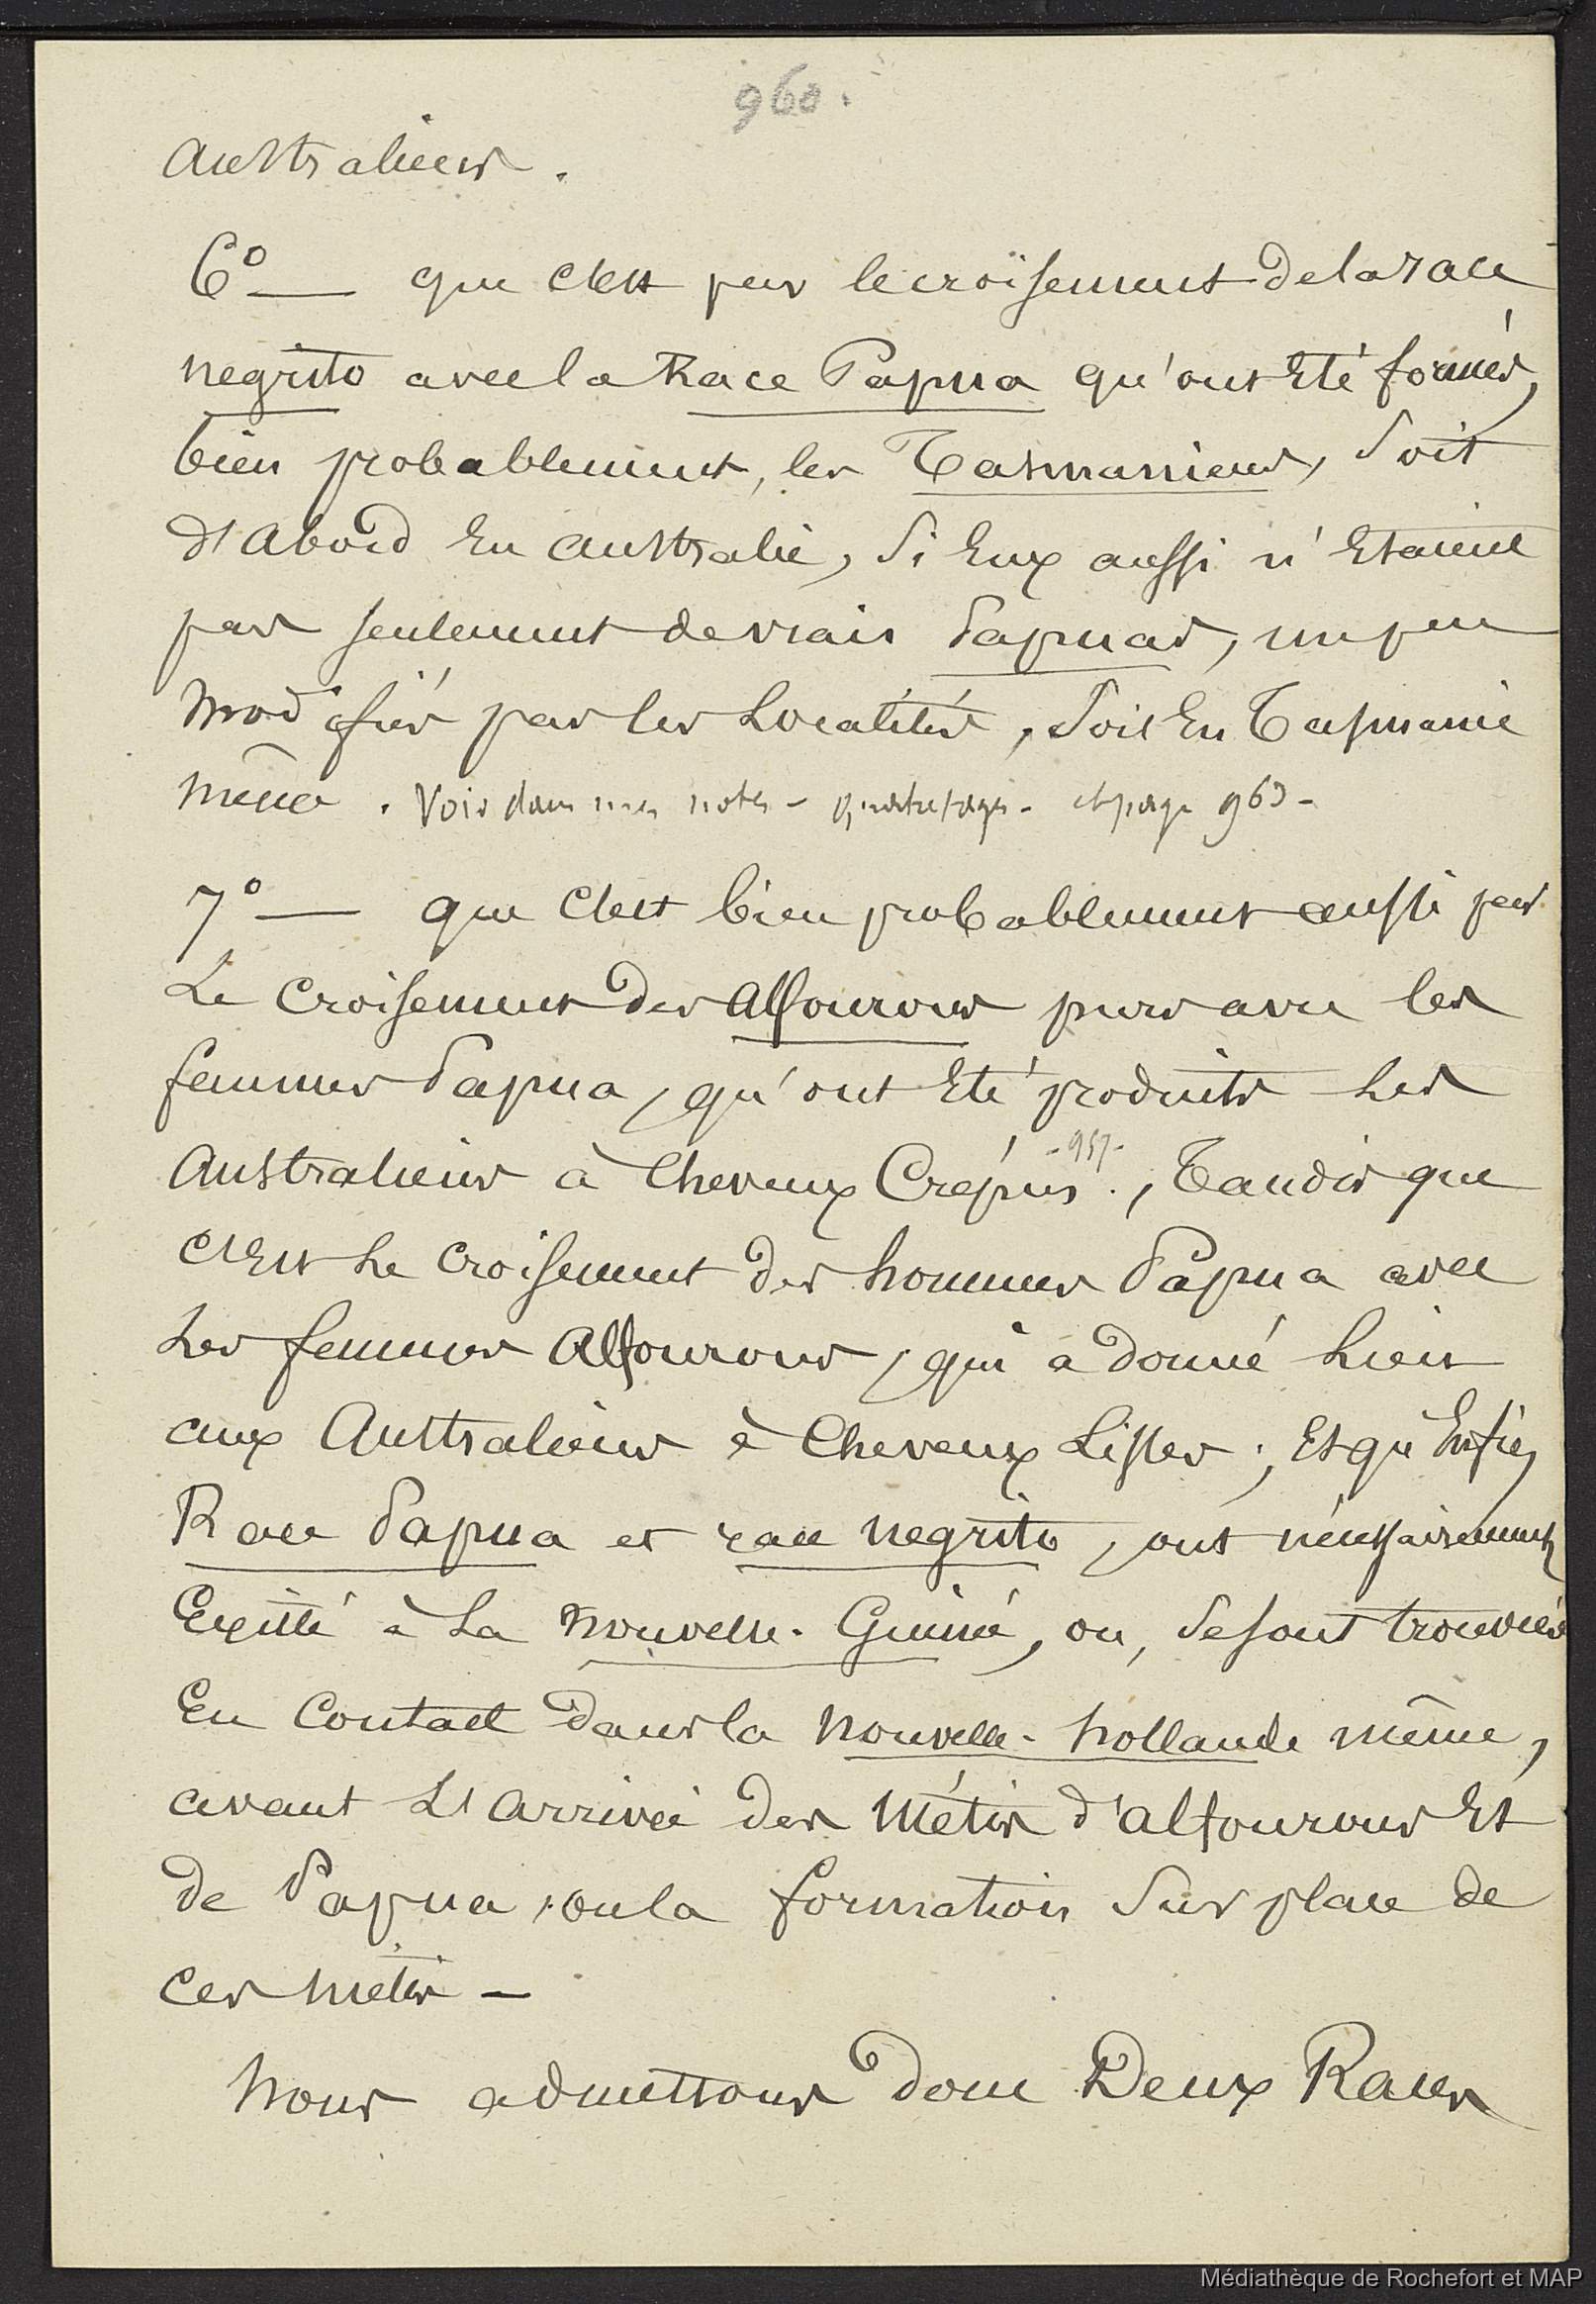 960.
Australiens.
6º — que c'est par le croïsement de la race
negrito avec la Race Papua qu'ont été formés,
bien probablement, les Tasmaniens, soit
d'abord en Australie, si eux aussi n'etaient
pas seulement de vrais Papuas, un peu
modifiés par les localités, soit en Tasmanie
même. Voir dans mes notes - Quatrefages - et page 963 -
7º — que c'est bien probablement aussi par
le croisement des Alfourous purs avec les
femmes Papua, qu'ont été produits les
- 957 -
Australiens à cheveux Crépus., Tandis que
c'est le croisement des hommes Papua avec
les femmes Alfourous, qui a donné lieu
aux Australiens à cheveux Lisses; et qu'enfin
Race Papua et race negrito, ont nécessairement
existé à la Nouvelle-Guinée, ou, se sont trouvées
en contact dans la Nouvelle-hollande même,
avant l'arrivée des Métis d'alfourous et
de Papua, ou la formation sur place de
ces métis —
Nous admettons donc Deux Races
Médiathèque de Rochefort et MAP